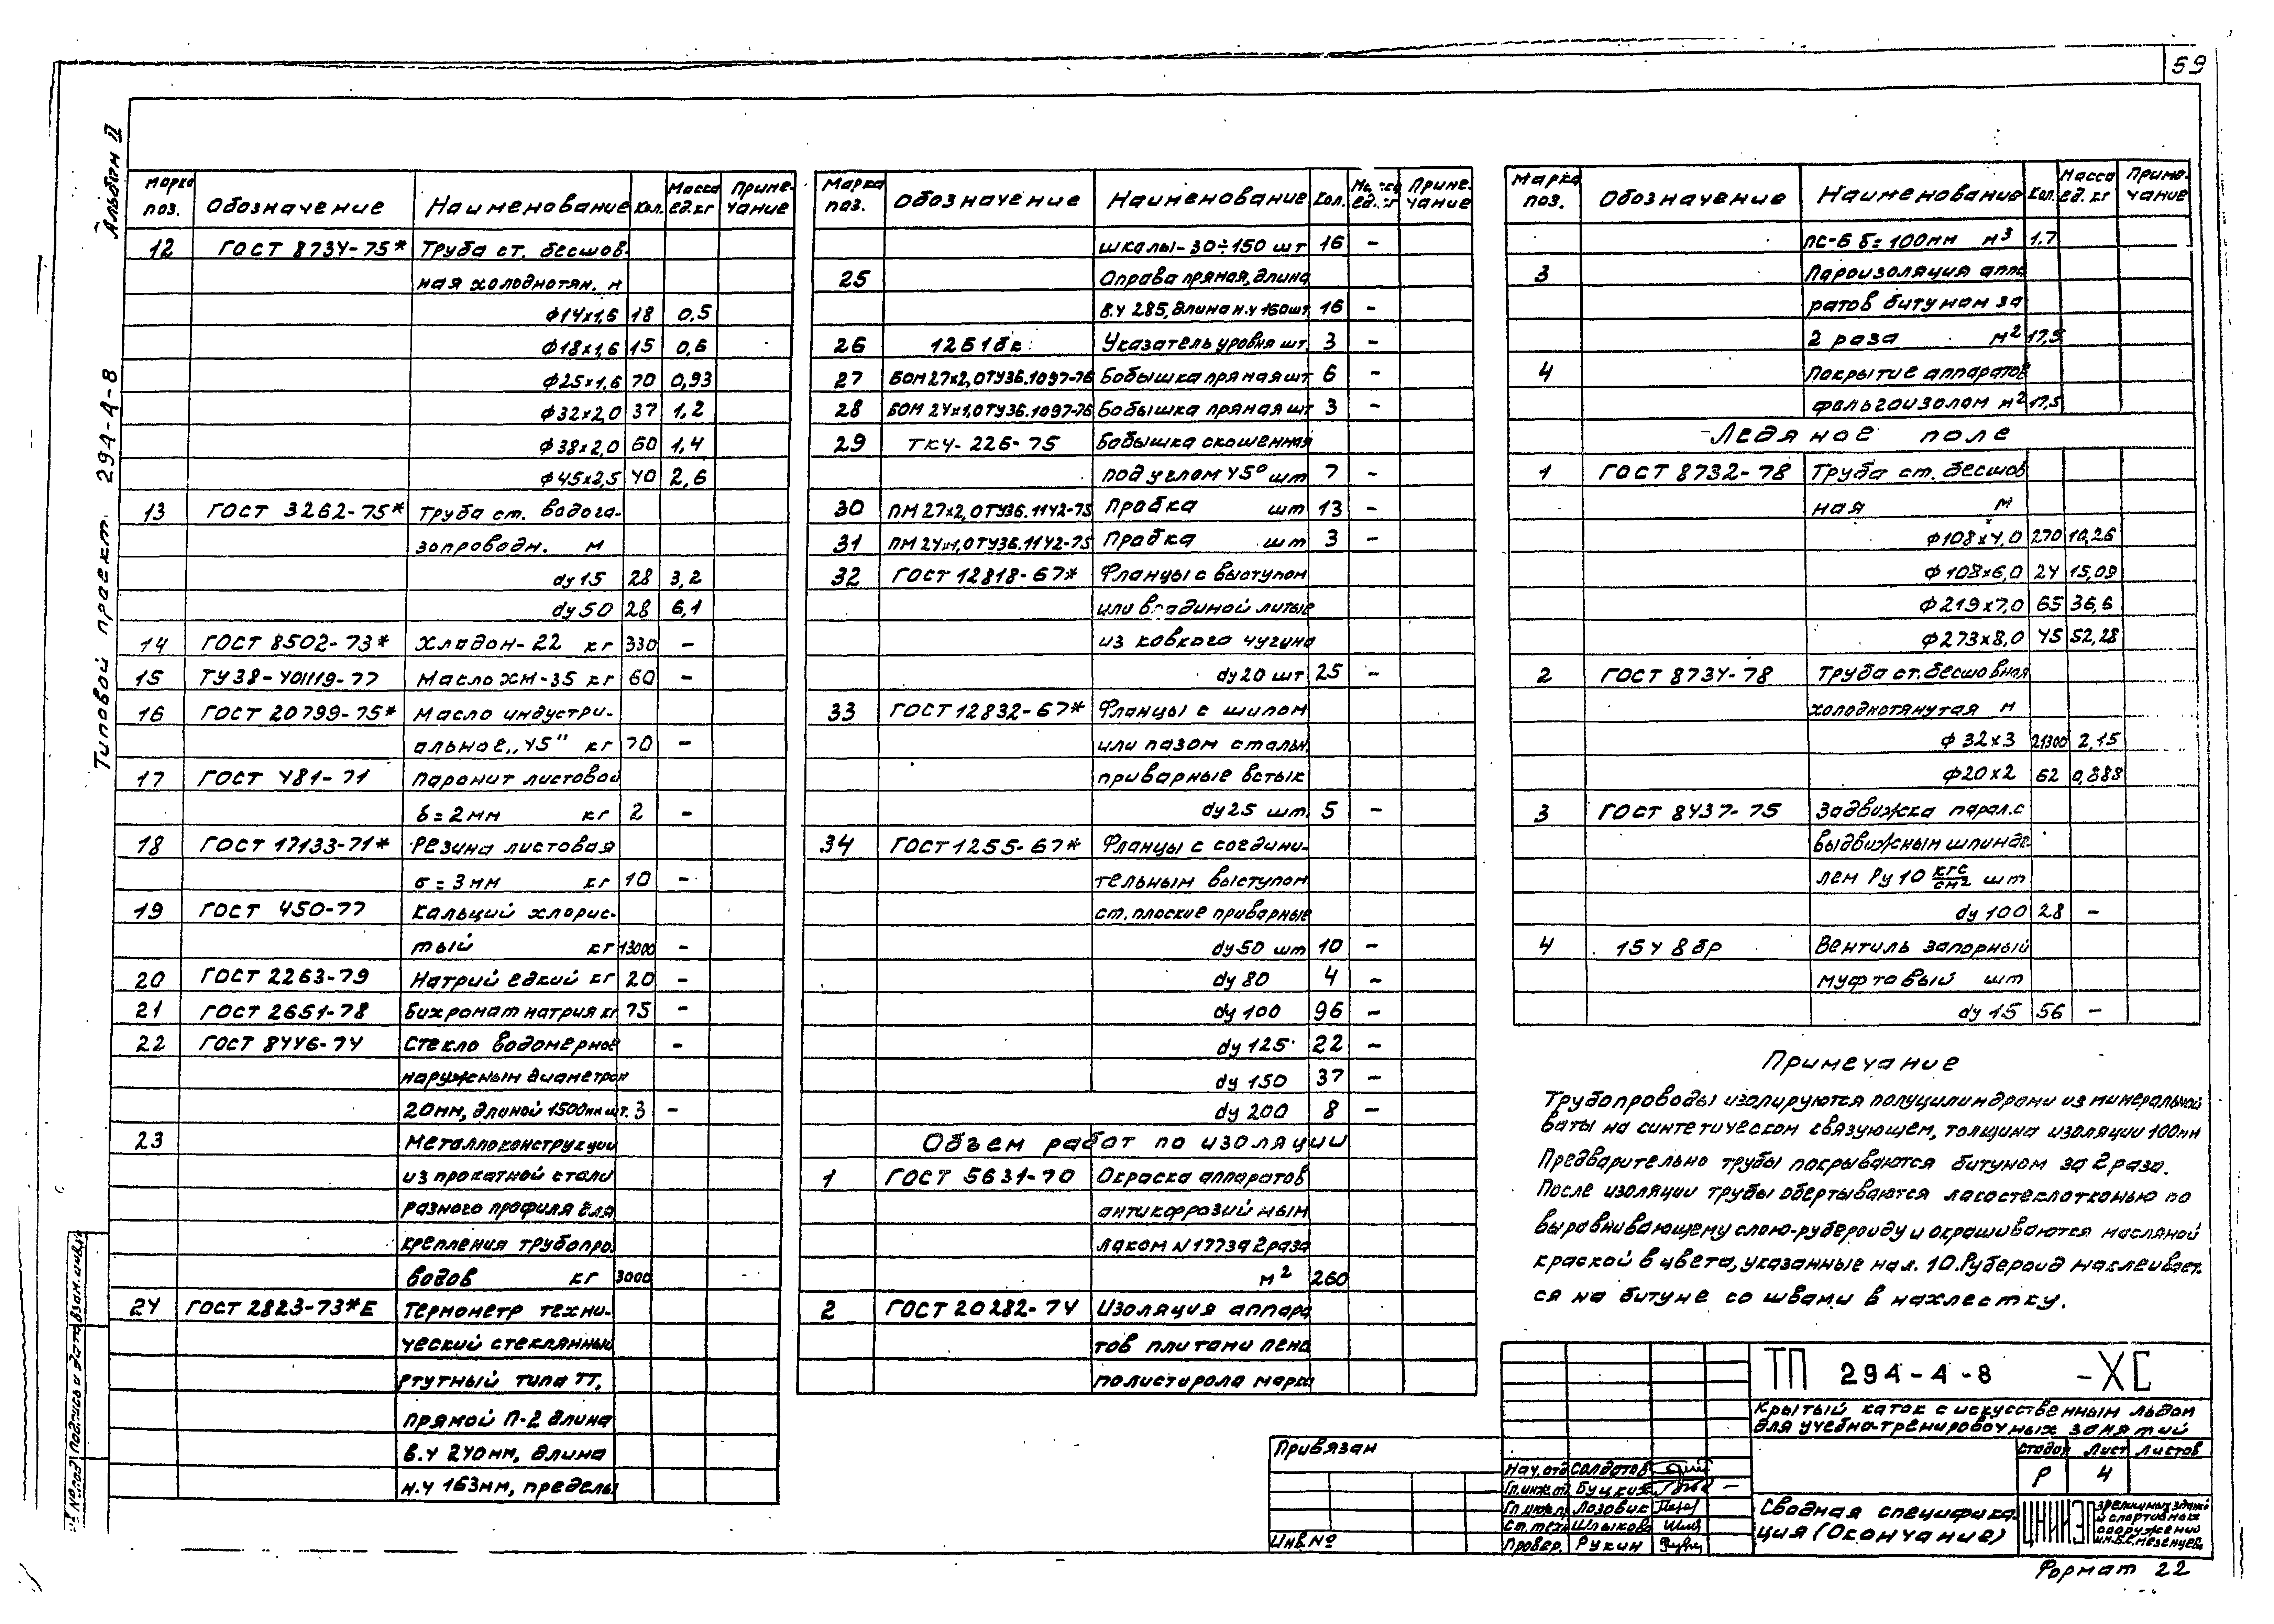 59
Альбом II
Типовой проект 294-4-8
Марка поз. Обозначение Наименование Кол. Масса ед. кг Приме-чание
12 ГОСТ 8734-75* Труба ст. бесшов-
ная холоднотян. м
φ14х1,6 18 0,5
φ18х1,6 15 0,6
φ25х1,6 70 0,93
φ32х2,0 37 1,2
φ38х2,0 60 1,4
φ45х2,5 40 2,6
13 ГОСТ 3262-75* Труба ст. водога-
зопроводн. м
dy 15 28 3,2
dy 50 28 6,1
14 ГОСТ 8502-73* Хладон-22 кг 330 -
15 ТУ38-401119-77 Масло ХМ-35 кг 60 -
16 ГОСТ 20799-75* Масло индустри-
альное „45" кг 70 -
17 ГОСТ 481-71 Паронит листовой
б=2мм кг 2 -
18 ГОСТ 17133-71* Резина листовая
б=3мм кг 10 -
19 ГОСТ 450-77 Кальций хлорис-
тый кг 13000 -
20 ГОСТ 2263-79 Натрий едкий кг 20 -
21 ГОСТ 2651-78 Бихромат натрия кг 75 -
22 ГОСТ 8446-74 Стекло водомерное -
наружным диаметром
20мм, длиной 1500мм шт. 3 -
23 Металлоконструкции
из прокатной стали
разного профиля для
крепления трубопро-
водов кг 3000 -
24 ГОСТ 2823-73*Е Термометр техни-
ческий стеклянный
ртутный типа ТТ,
прямой П-2 длина
в.ч 240мм, длина
н.ч 163мм, пределы
Марка поз. Обозначение Наименование Кол. Масса ед. кг Приме-чание
шкалы-30÷150 шт 16 -
25 Оправа прямая, длина
в.ч 285, длина н.ч 160 шт 16 -
26 12б1бк Указатель уровня шт. 3 -
27 БОМ 27х2,0 ТУ36.1097-76 Бобышка прямая шт 6 -
28 БОМ 24х1,0 ТУ36.1097-76 Бобышка прямая шт 3 -
29 ТК4-226-75 Бобышка скошенная
под углом 45° шт 7 -
30 ПМ 27х2,0 ТУ36.1142-75 Пробка шт 13 -
31 ПМ 24х1,0 ТУ36.1142-75 Пробка шт 3 -
32 ГОСТ 12818-67* Фланцы с выступом
или впадиной литые
из ковкого чугуна
dy 20 шт 25 -
33 ГОСТ 12832-67* Фланцы с шипом
или пазом стальн.
приварные встык
dy 25 шт. 5 -
34 ГОСТ 1255-67* Фланцы с соедини-
тельным выступом
ст. плоские приварные
dy 50 шт 10 -
dy 80 4 -
dy 100 96 -
dy 125 22 -
dy 150 37 -
dy 200 8 -
Объем работ по изоляции
1 ГОСТ 5631-70 Окраска аппаратов
антикоррозийным
лаком N177за 2раза
м² 260
2 ГОСТ 20282-74 Изоляция аппара
тов плитами пено
полистирола марки
Марка поз. Обозначение Наименование Кол. Масса ед. кг Приме-чание
ПС-Б б=100мм м³ 1,7
3 Пароизоляция аппа
ратов битумом за
2 раза м² 17,5
4 Покрытие аппаратов
фольгоизолом м² 17,5
Ледяное поле
1 ГОСТ 8732-78 Труба ст. бесшов
ная м
φ108х4,0 270 10,26
φ108х6,0 24 15,09
φ219х7,0 65 36,6
φ273х8,0 45 52,28
2 ГОСТ 8734-78 Труба ст. бесшовная
холоднотянутая м
φ 32х3 21300 2,15
φ20х2 62 0,888
3 ГОСТ 8437-75 Задвижка парал. с
выдвижным шпинде
лем Ру 10 кгс/см² шт
dy 100 28 -
4 15ч 8бр Вентиль запорный
муфтовый шт
dy 15 56 -
Примечание
Трубопроводы изолируются полуцилиндрами из минеральной
ваты на синтетическом связующем, толщина изоляции 100мм
Предварительно трубы покрываются битумом за 2 раза.
После изоляции трубы обертываются лакостеклотканью по
выравнивающему слою-рубероиду и окрашиваются масляной
краской в цвета, указанные на л. 10. Рубероид наклеивает-
ся на битуме со швами в нахлестку.
ТП 294-4-8 -ХС
Крытый каток с искусственным льдом
для учебно-тренировочных занятий
Стадия Лист Листов
Р 4
Сводная специфика-
ция (Окончание)
ЦНИИЭП зрелищных зданий
и спортивных
сооружений
им. Б.С. Мезенцева
Привязан
Инв.№
Нач. отд Солдатов
Гл.инж.от Буцких
Гл.инж.пр Лозовик
Ст. техн Шлыкова
Провер. Рукин
Подпись и дата Взам. инв.№
Формат 22